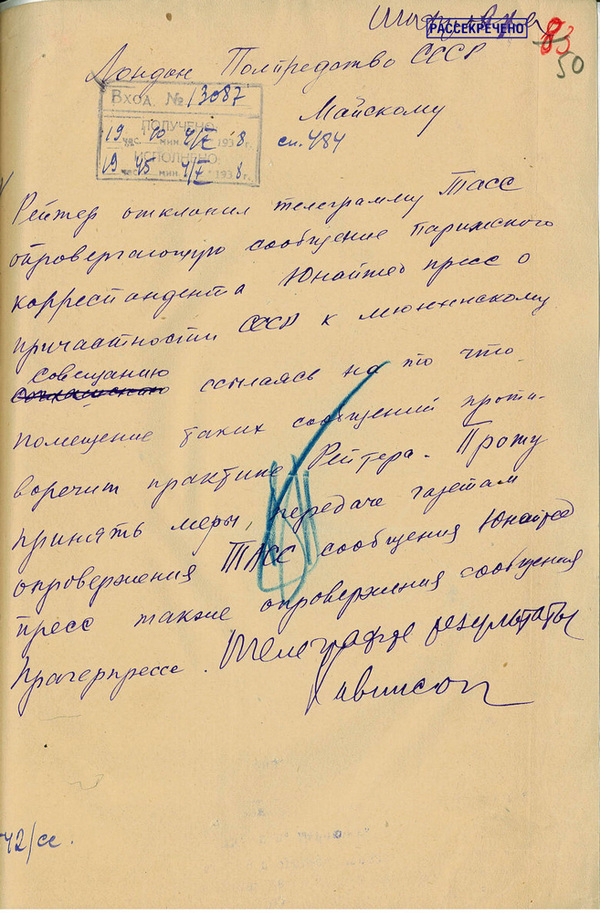 РАССЕКРЕЧЕНО
83
50
Лондон Полпредство СССР
Майскому
Вход. № 13087
ПОЛУЧЕНО
19 час. 40 мин. 4/X 1938 г.
ИСПОЛНЕНО
19 час. 45 мин. 4/X 1938 г.
сп. 484
Рейтер отклонил телеграмму Тасс
опровергающую сообщение парижского
корреспондента Юнайтед пресс о
причастности СССР к мюнхенскому
совещанию
ссылаясь на то что
помещение таких сообщений проти-
воречит практике Рейтера. Прошу
принять меры, передаче газетам
опровержения ТАСС сообщения Юнайтед
пресс также опровержения сообщения
Прагерпрессе. Телеграфьте результаты
42/сс.